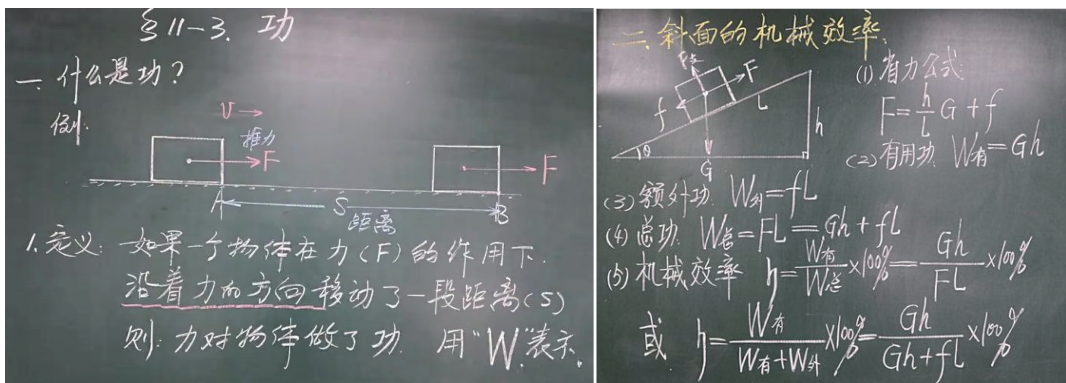 §11-3. 功
一、什么是功?
例:
V
推力
F
F
A
S
B
距离
1、定义: 如果一个物体在力(F)的作用下.
沿着力的方向移动了一段距离(S)
则:力对物体做了功. 用"W"表示.
二、斜面的机械效率:
F支
F
f
L
h
θ
G
(1) 省力公式:
F=\frac{h}{L}G+f
(2) 有用功: W有=Gh
(3) 额外功: W外=fL
(4) 总功: W总=FL=Gh+fL
(5) 机械效率 η=\frac{W有}{W总}×100%=\frac{Gh}{FL}×100%
或 η=\frac{W有}{W有+W外}×100%=\frac{Gh}{Gh+fL}×100%